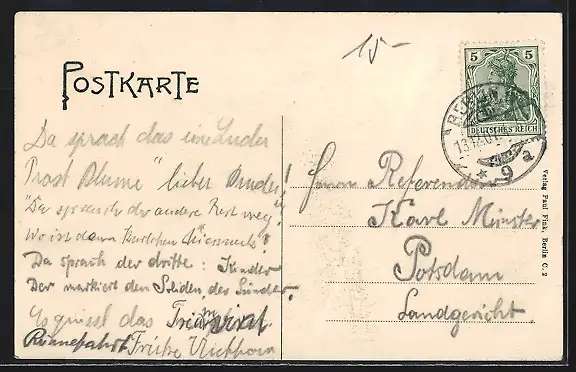 15-
POSTKARTE
5 5
DEUTSCHES REICH
BERLIN
9 a
Da sprach das eine Luder
"Prost Blume" lieber Bruder!
"Da sprach der andere Rest weg!
Wo ist denn
Da sprach der dritte: Kinder
Der markiert den Soliden, der Sünder!
Es grüsst das
Fritze
Herrn Referendar
Karl Münster
Potsdam
Landgericht.
Verlag Paul Fink, Berlin C. 2